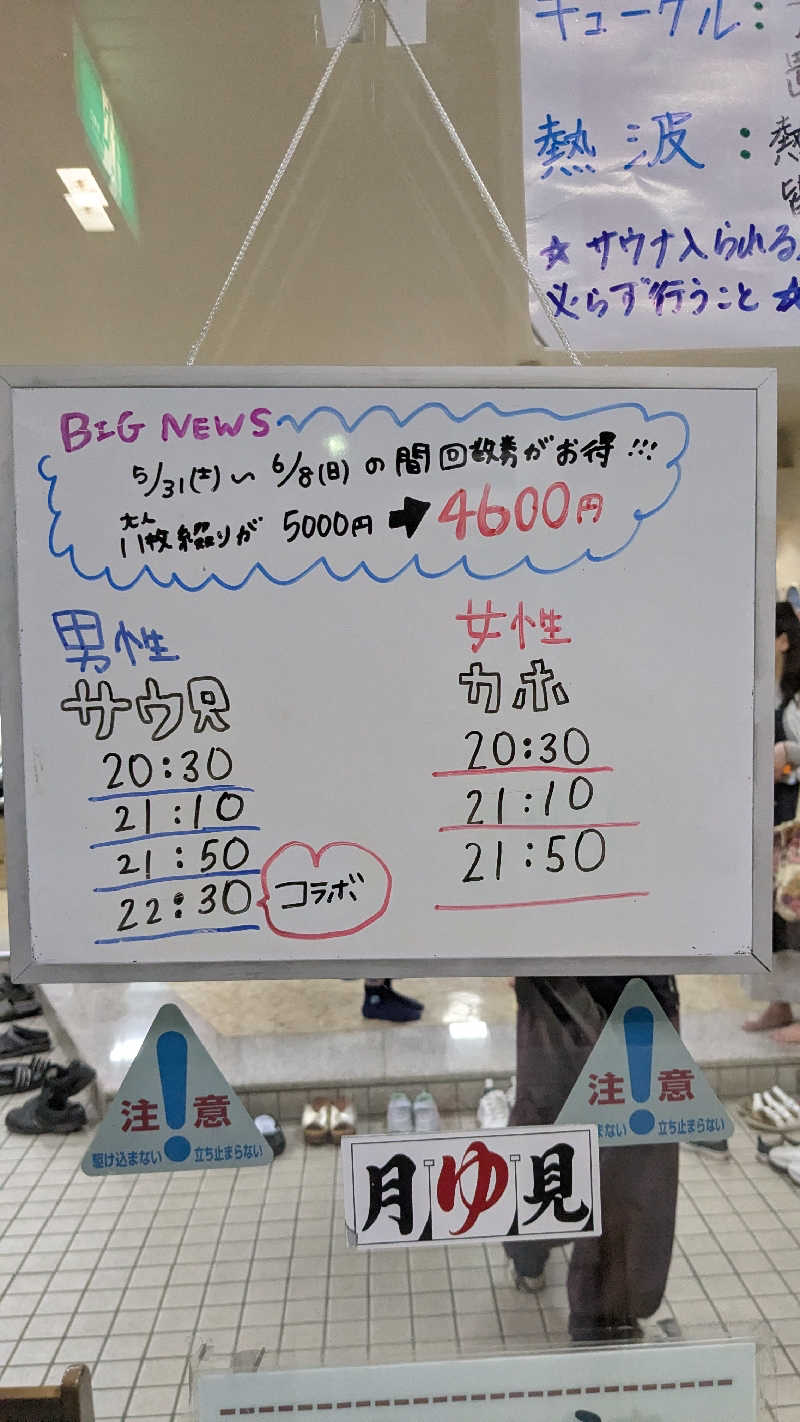 キューゲル：
熱波：熱
☆サウナ入られる
必らず行うこと☆
BIG NEWS
5/31(土)〜6/8(日)の間回数券がお得!!!
大人
11枚綴りが 5000円➡4600円
男性
サウ兄
20:30
21:10
21:50
22:30
コラボ
女性
カホ
20:30
21:10
21:50
注!意
駆け込まない 立ち止まらない
注!意
まない 立ち止まらない
月ゆ見